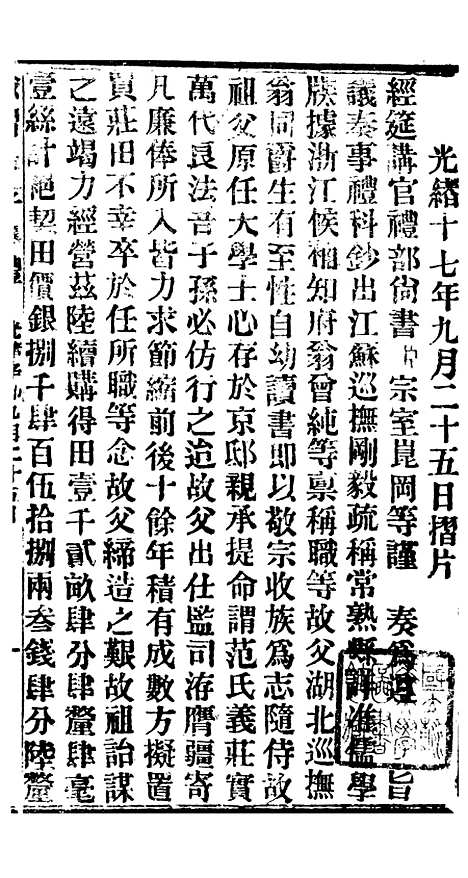 光緒十七年九月二十五日摺片
經筵講官禮部尚書 宗室崑岡等謹 奏爲遵 旨
議奏事禮科鈔出江蘇巡撫剛毅疏稱常熟縣儒學
牒據浙江候補知府翁曾純等稟稱職等故父湖北巡撫
翁同爵生有至性自幼讀書即以敬宗收族爲志隨侍故
祖父原任大學士心存於京邸親承提命謂范氏義莊實
萬代良法吾子孫必仿行之迨故父出仕監司洊膺疆寄
凡廉俸所入皆力求節縮前後十餘年積有成數方擬置
買莊田不幸卒於任所職等念故父締造之艱故祖詒謀
之遠竭力經營茲陸續購得田壹千貳畝肆分肆釐肆毫
壹絲計絕契田價銀捌千肆百伍拾捌兩叁錢肆分陸釐